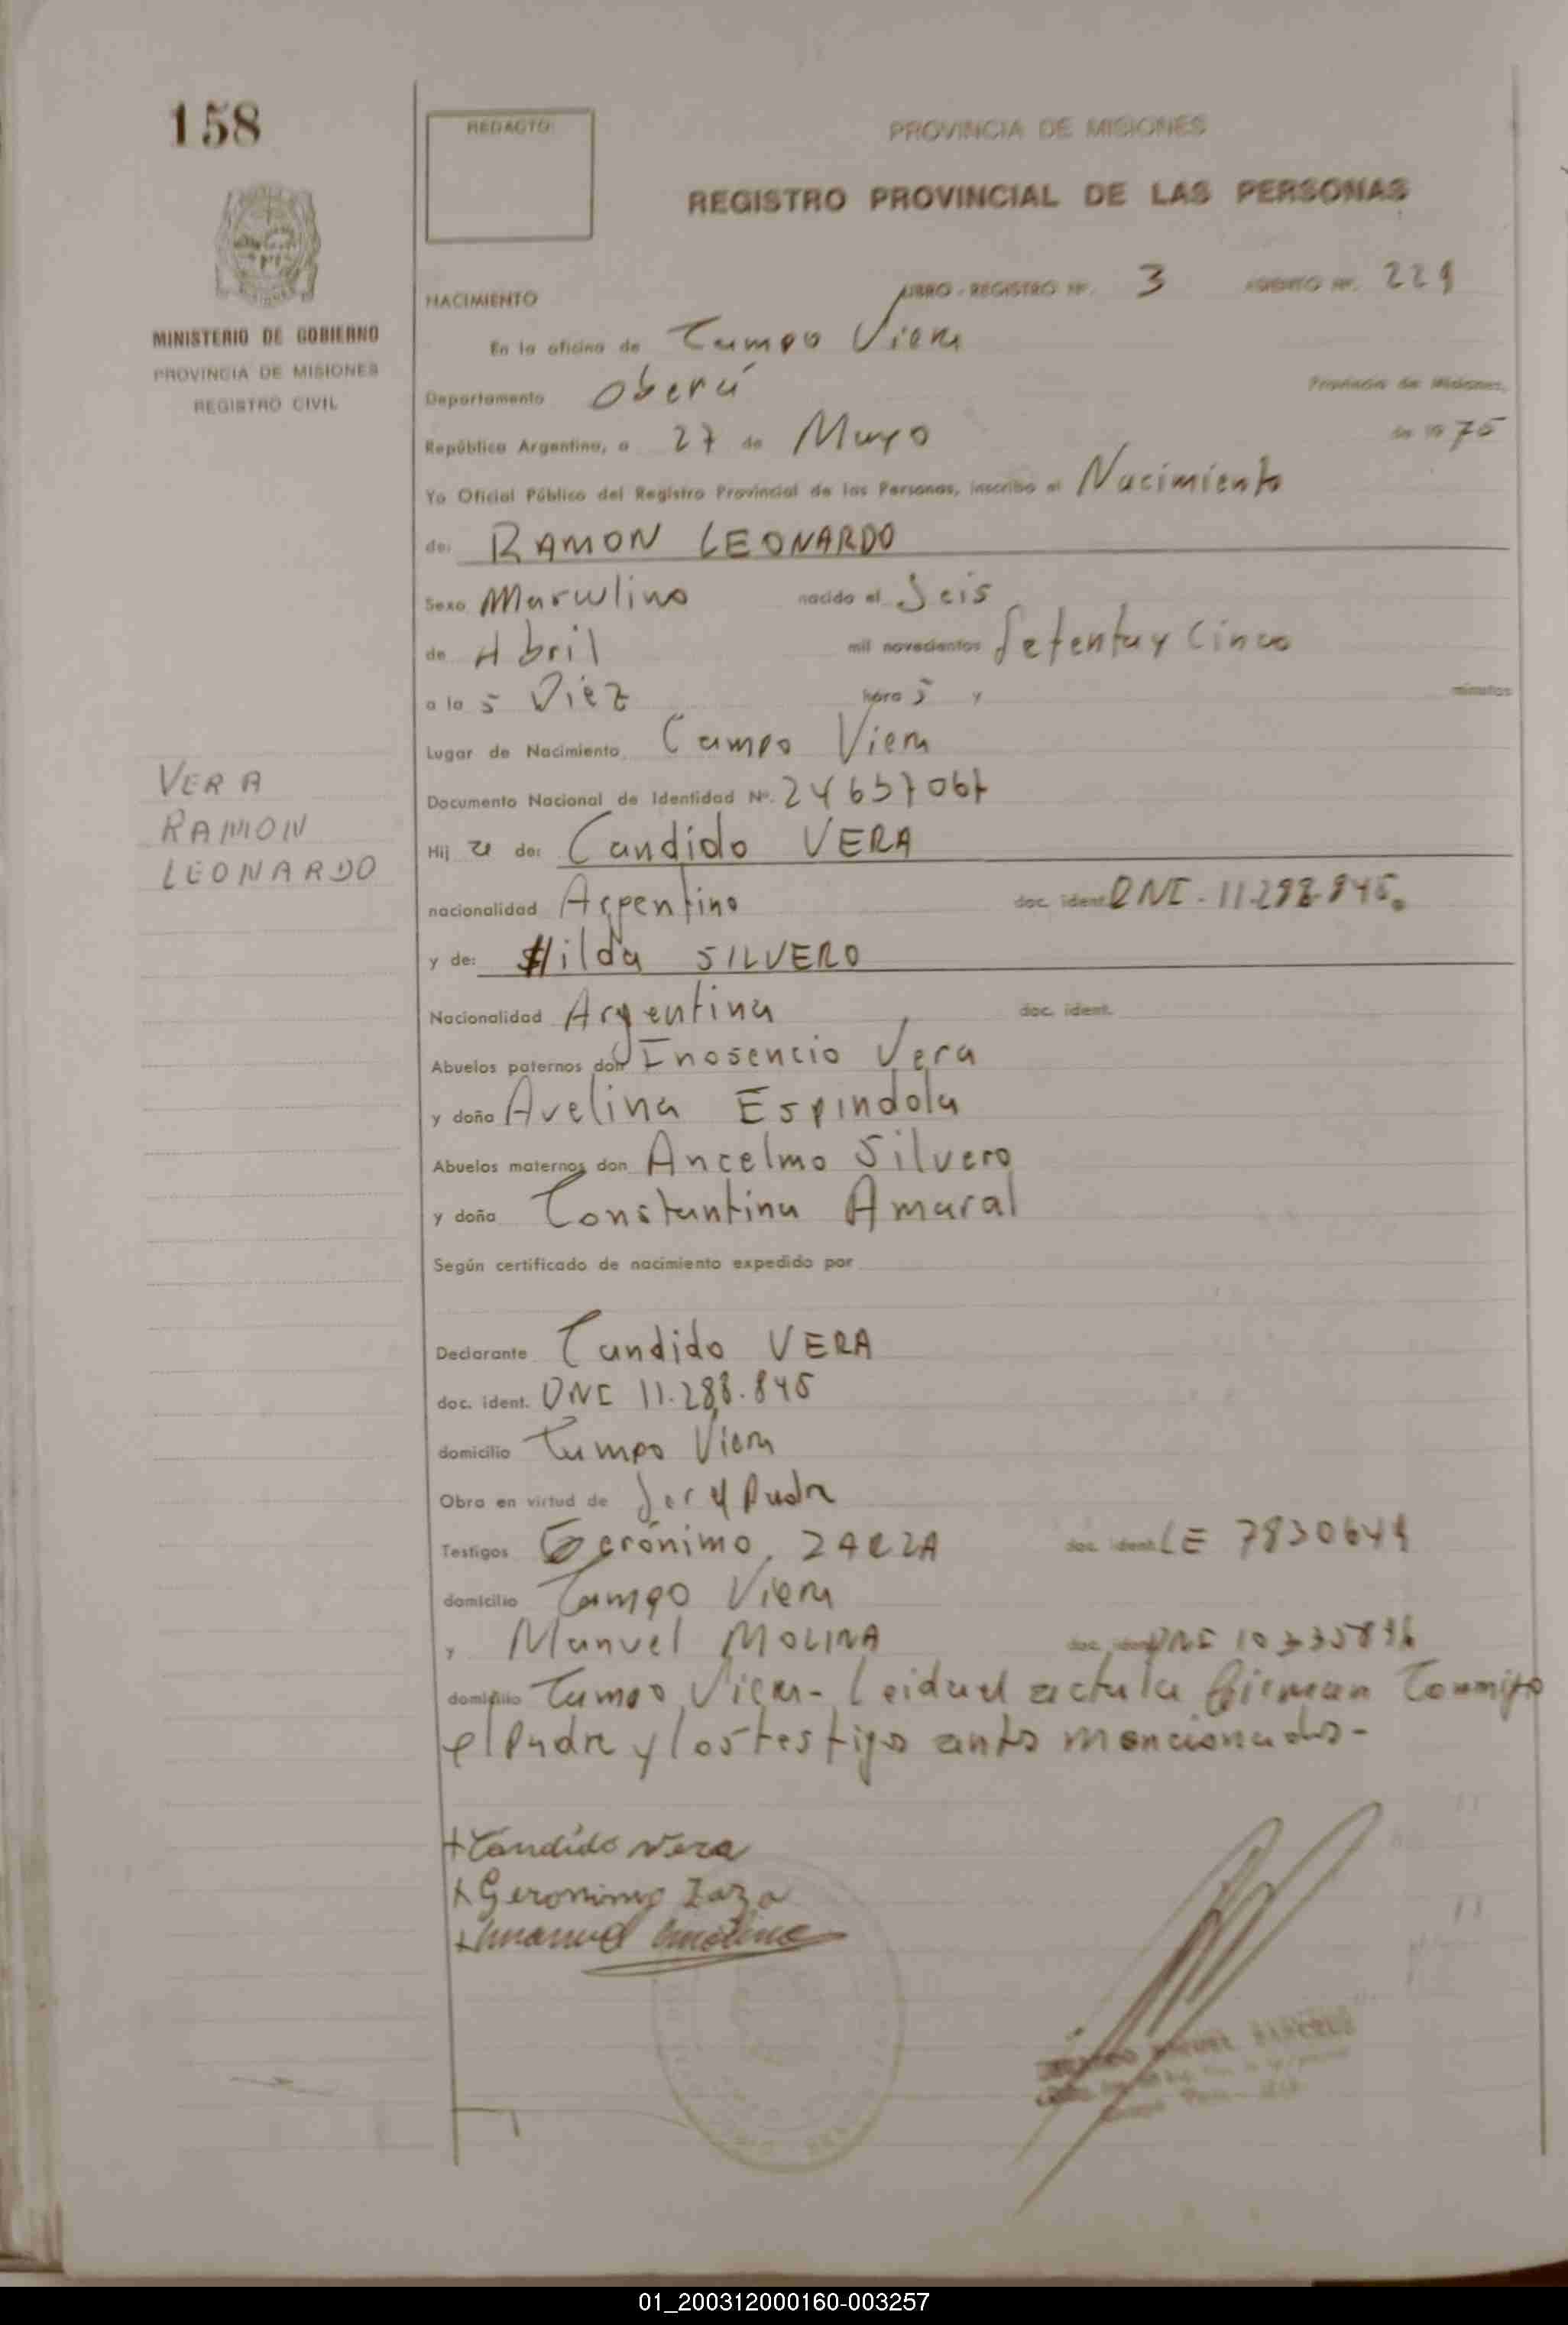 158
REDACTO:
PROVINCIA DE MISIONES
REGISTRO PROVINCIAL DE LAS PERSONAS
MINISTERIO DE GOBIERNO
PROVINCIA DE MISIONES
REGISTRO CIVIL
NACIMIENTO LIBRO - REGISTRO Nº. 3 ASIENTO Nº. 229
En la oficina de Campo Viera
Departamento Oberá Provincia de Misiones,
República Argentina, a 27 de Mayo de 19 75
Yo Oficial Público del Registro Provincial de las Personas, inscribo el Nacimiento
de: RAMON LEONARDO
Sexo Masculino nacido el Seis
de Abril mil novecientos Setenta y Cinco
a la s Diez hora s y minutos
Lugar de Nacimiento Campo Viera
Documento Nacional de Identidad Nº. 24657067
VERA
RAMON
LEONARDO
Hij o de: Candido VERA
nacionalidad Argentino doc. ident. DNI - 11.288.845.
y de: Hilda SILVERO
Nacionalidad Argentina doc. ident.
Abuelos paternos don Inosencio Vera
y doña Avelina Espindola
Abuelos maternos don Ancelmo Silvero
y doña Constantina Amaral
Según certificado de nacimiento expedido por
Declarante Candido VERA
doc. ident. DNI 11.288.845
domicilio Campo Viera
Obra en virtud de Ser el Padre
Testigos Gerónimo ZARZA doc. ident. LE 7830649
domicilio Campo Viera
y Manuel MOLINA doc. ident. DNI
domicilio Campo Viera - Leida el acta la firman Conmigo
el Padre y los testigo antes mencionados -
+ Candido Vera
+ Geronimo Zaza
+ Manuel Molina
01_200312000160-003257